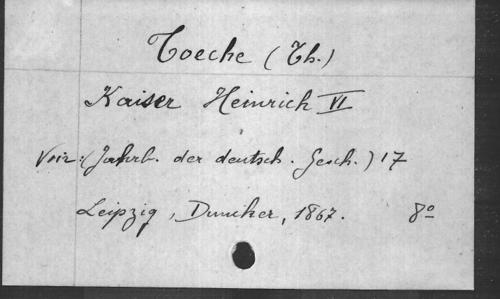 Toeche (Th.)
Kaiser Heinrich VI
Voir: (Jahrb. der deutsch. Gesch.) 17
Leipzig, Duncker, 1867. 8º